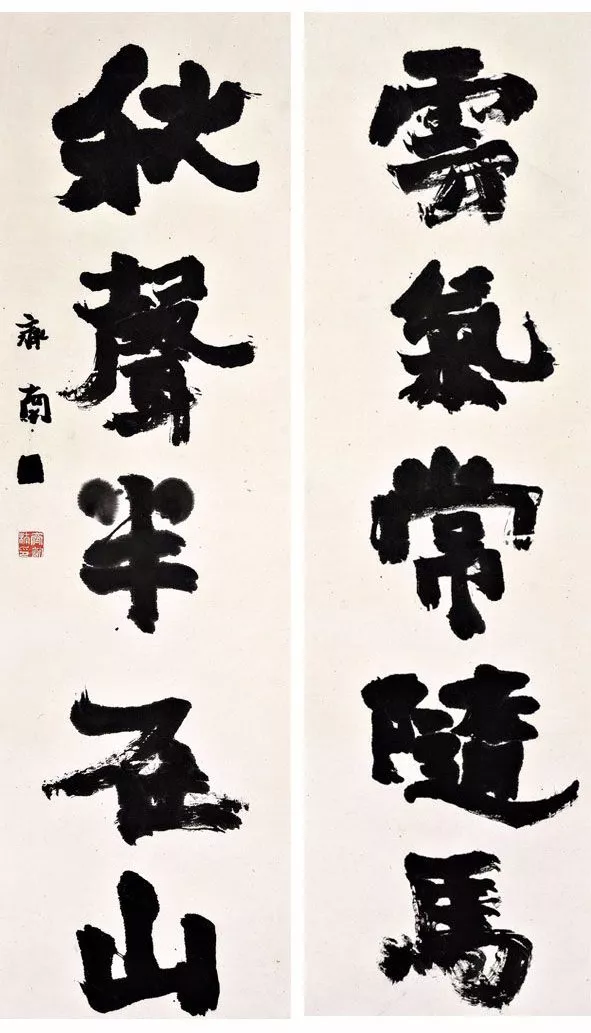 雲氣常隨馬
秋聲半在山
齊南